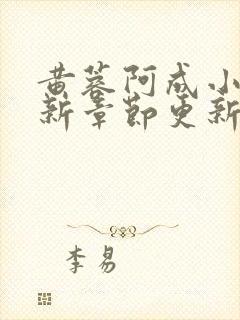 黄蓉阿成小
新章节更新
李易